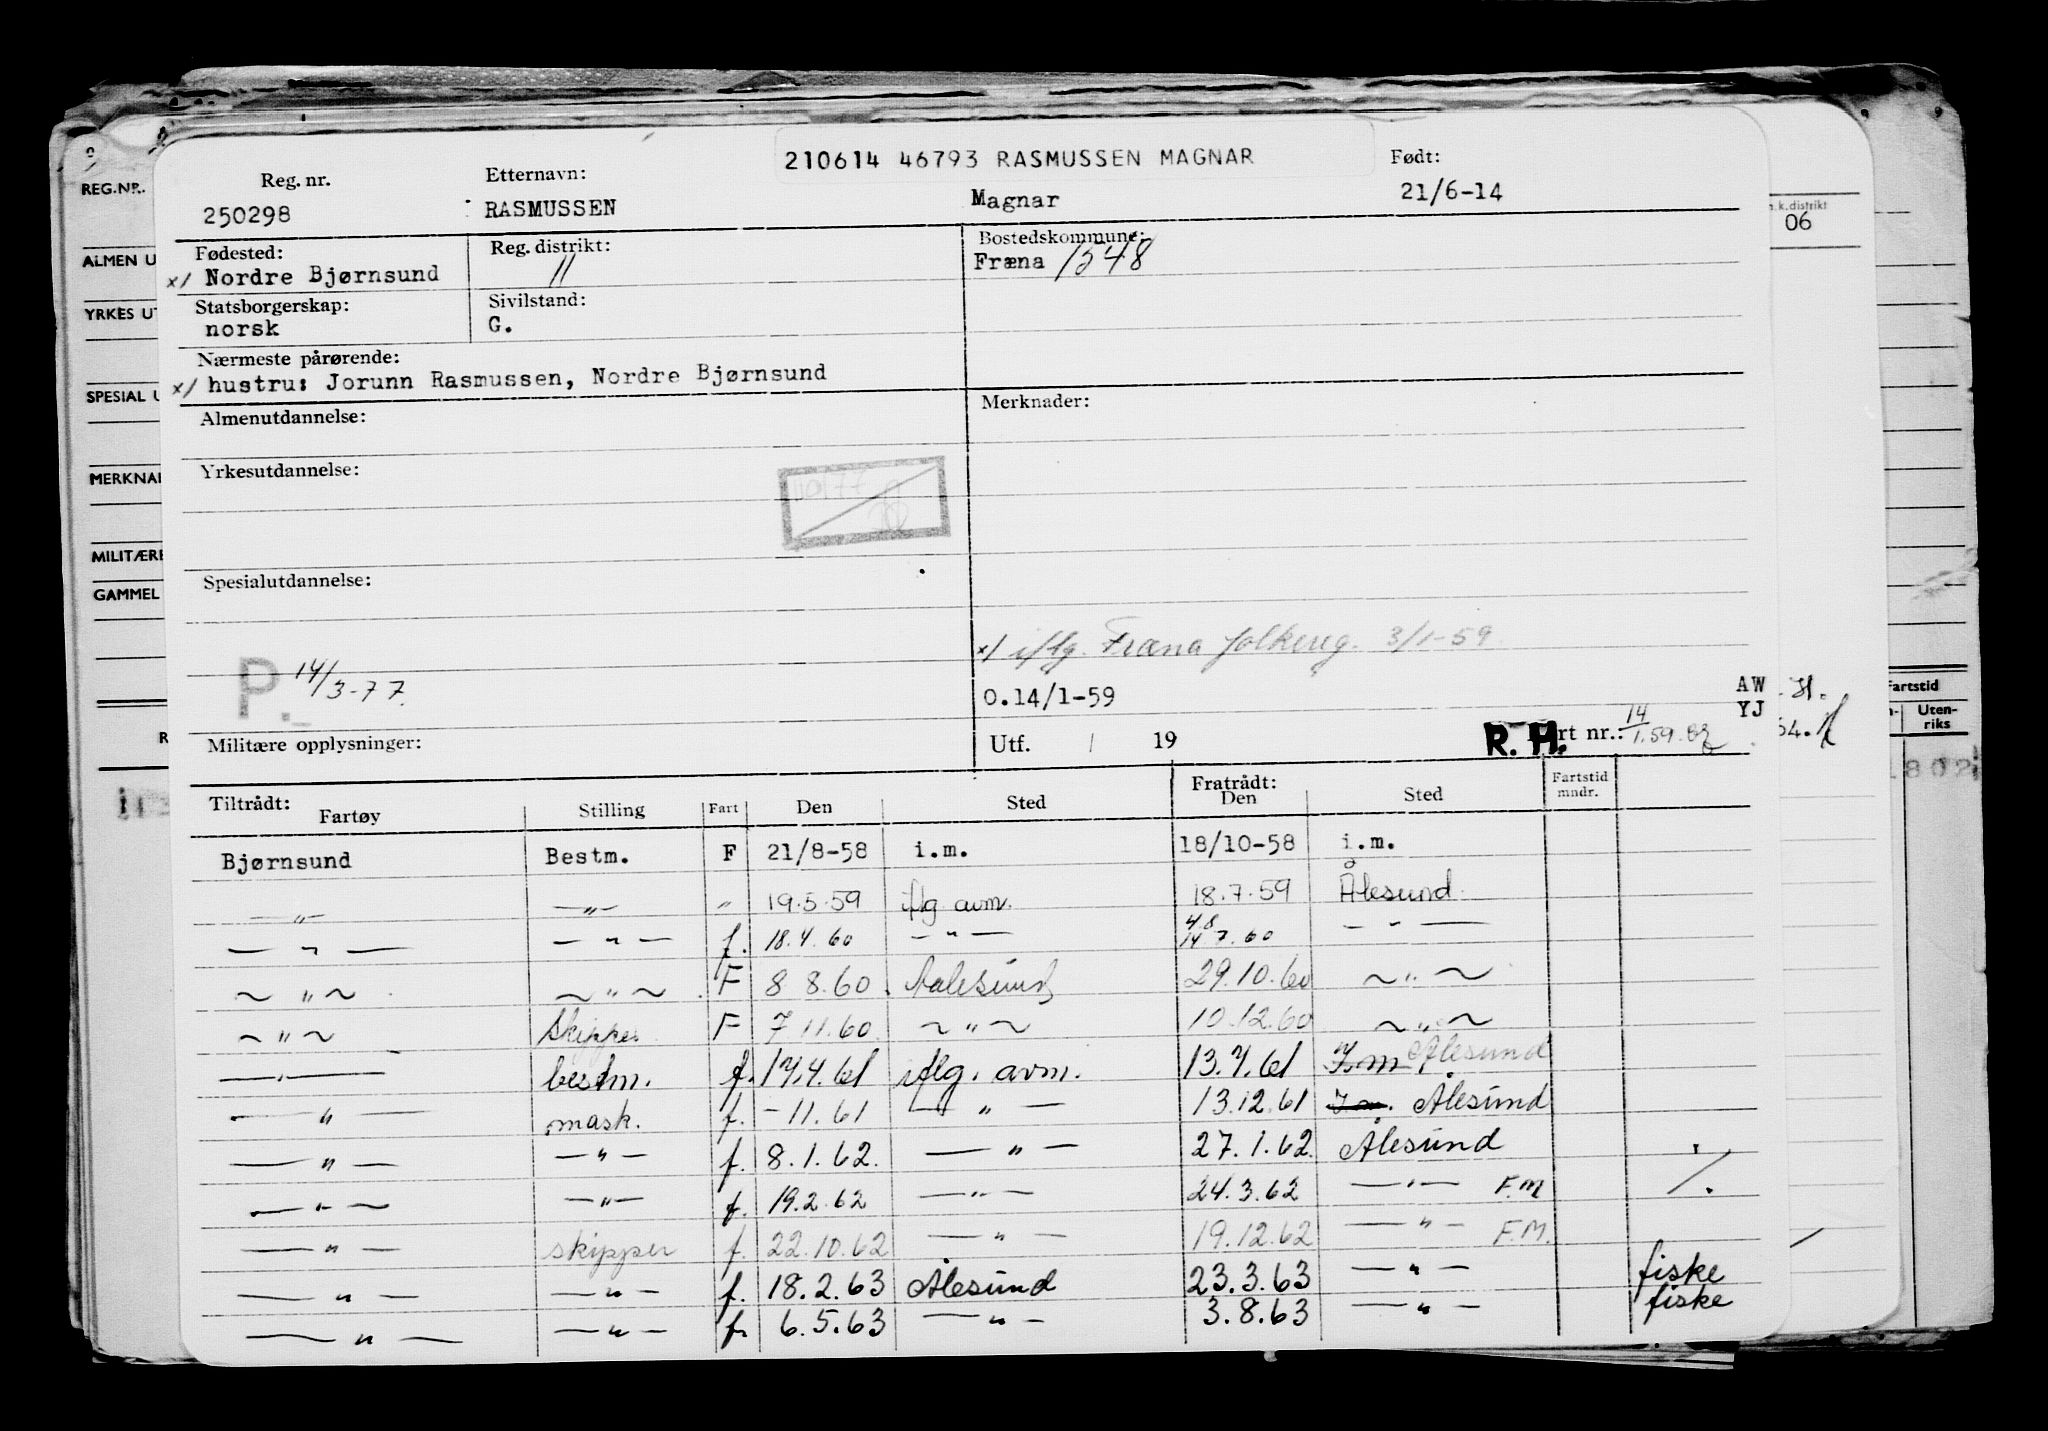 210614 46793 RASMUSSEN MAGNAR
Reg. nr. Etternavn: Født:
250298 RASMUSSEN Magnar 21/6-14
Fødested: Reg. distrikt: Bostedskommune:
x/ Nordre Bjørnsund 11 Fræna 1548
Statsborgerskap: Sivilstand:
norsk G.
Nærmeste pårørende:
x/ hustru: Jorunn Rasmussen, Nordre Bjørnsund
Almenutdannelse: Merknader:
Yrkesutdannelse:
Spesialutdannelse:
x/ iflg. Fræna folkereg. 3/1-59
P. 14/3-77. O.14/1-59
AW
YJ
Militære opplysninger: Utf. / 19 R. H. rt nr.: 14/1.59
Tiltrådt: Fratrådt:
Fartøy Stilling Fart Den Sted Den Sted Fartstid mndr.
Bjørnsund Bestm. F 21/8-58 i.m. 18/10-58 i.m.
— " — — " — " 19.5.59 iflg avm. 18.7.59 Ålesund
— " — — " — f. 18.4.60 — " — 14 7.60 — " —
~ " ~ ~ " ~ F 8 8.60 Aalesund 29.10.60 ~ " ~
~ " ~ Skipper F 7 11.60 ~ " ~ 10.12.60 ~ " ~
— " — bestm. f. 17.4.61 iflg. avm. 13.7.61 I m Ålesund
— " — mask. f. - 11.61 — " — 13.12.61 Ålesund
— " — — " — f. 8.1.62. — " — 27.1.62 Ålesund
— " — — " — f. 19.2.62 — " — 24.3.62 — " — F.M ./.
— " — skipper f. 22.10.62 — " — 19.12.62 — " — F.M.
— " — — " — f. 18.2.63 Ålesund 23.3.63 — " — fiske
— " — — " — f. 6.5.63 — " — 3.8.63 — " — fiske
REG.NR.
ALMEN U
YRKES UT
SPESIAL U
MERKNA
MILITÆRE
GAMMEL
R
k.distrikt
06
Fartstid
Uten-
riks